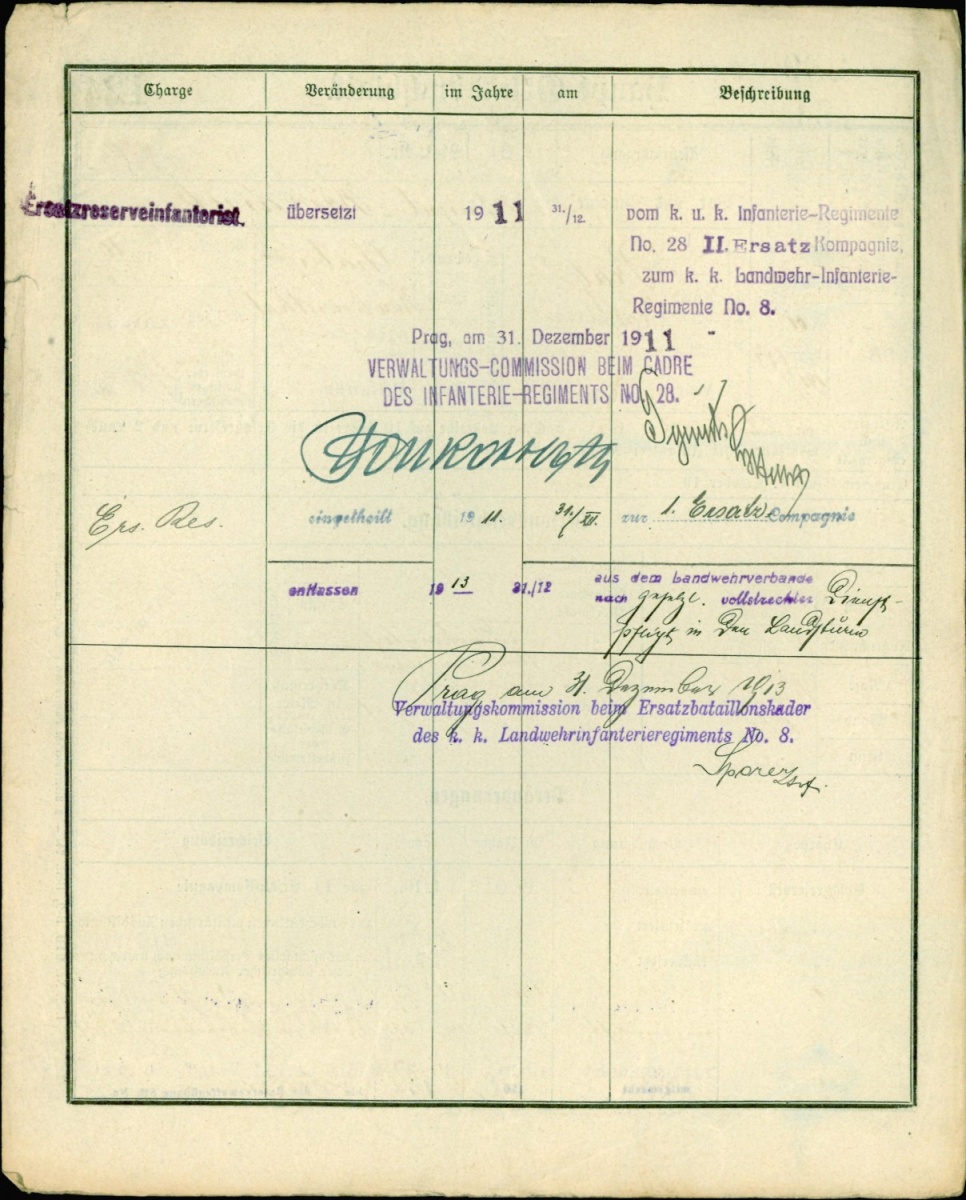 Charge Veränderung im Jahre am Beschreibung
Ersatzreserveinfanterist. übersetzt 1911 31./12. vom k. u. k. Infanterie-Regimente
No. 28 II. Ersatz Kompagnie,
zum k. k. Landwehr-Infanterie-
Regimente No. 8.
Prag, am 31. Dezember 1911
VERWALTUNGS-COMMISSION BEIM CADRE
DES INFANTERIE-REGIMENTS NO. 28.
Ers. Res. eingetheilt 1911. 31./XII. zur 1. Ersatz Compagnie
entlassen 1913 31./12 aus dem Landwehrverbande
nach gesetzl. vollstreckter Dienst-
pflicht in den Landsturm
Prag am 31. Dezember 1913
Verwaltungskommission beim Ersatzbataillonskader
des k. k. Landwehrinfanterieregiments No. 8.